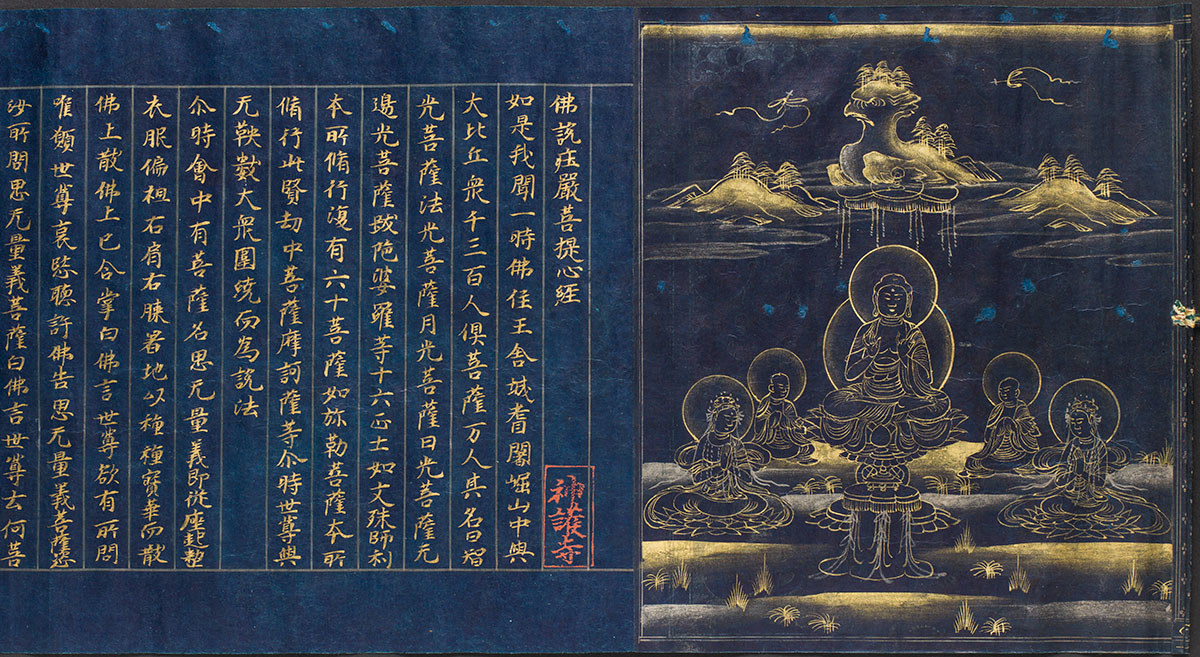 佛説荘嚴菩提心經
神護寺
如是我聞一時佛住王舎城耆闍崛山中與
大比丘衆千三百人俱菩薩万人其名曰智
光菩薩法光菩薩月光菩薩日光菩薩无
邊光菩薩跋陁婆羅等十六心士如文殊師利
本所脩行復有六十菩薩如弥勒菩薩本所
脩行此賢劫中菩薩摩訶薩等尒時世尊與
无鞅數大衆圍繞而為説法
尒時會中有菩薩名思无量義即從座起整
衣服偏袒右肩右膝著地以種種寳華而散
佛上散佛上已合掌白佛言世尊欲有所問
唯願世尊哀愍聽許佛告思无量義菩薩恣
汝所問思无量義菩薩白佛言世尊云何菩